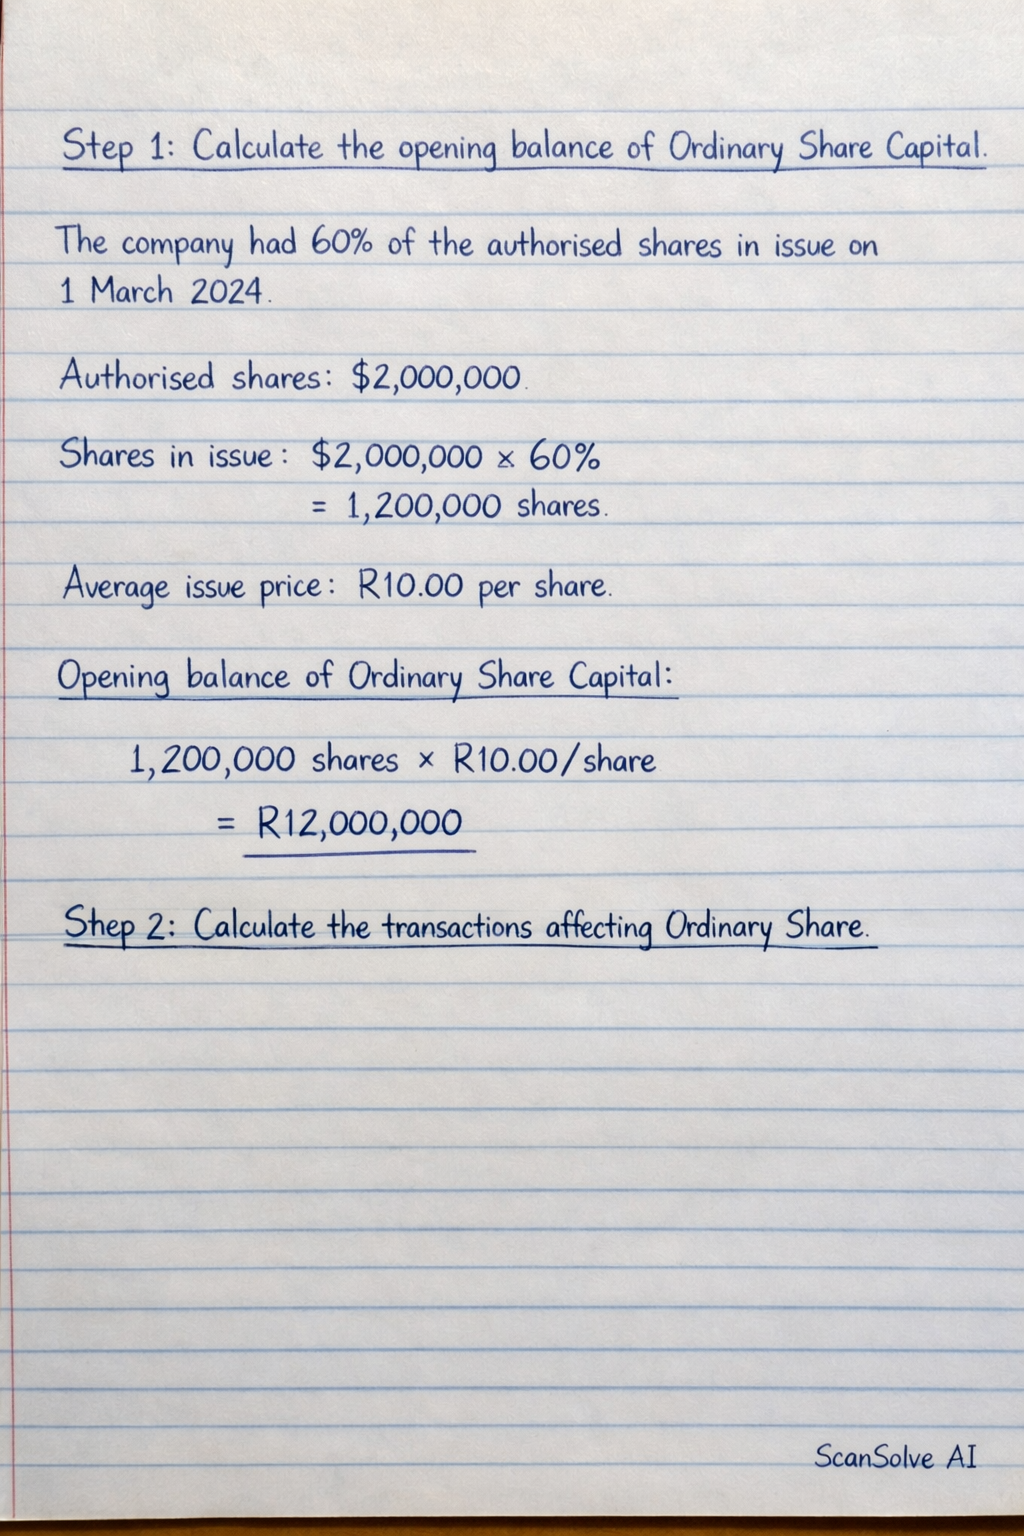 Step 1: Calculate the opening balance of Ordinary Share Capital.
The company had 60% of the authorised shares in issue on
1 March 2024.
Authorised shares: $2,000,000.
Shares in issue: $2,000,000 × 60%
= 1,200,000 shares.
Average issue price: R10.00 per share.
Opening balance of Ordinary Share Capital:
1,200,000 shares × R10.00/share
= R12,000,000
Shep 2: Calculate the transactions affecting Ordinary Share.
ScanSolve AI